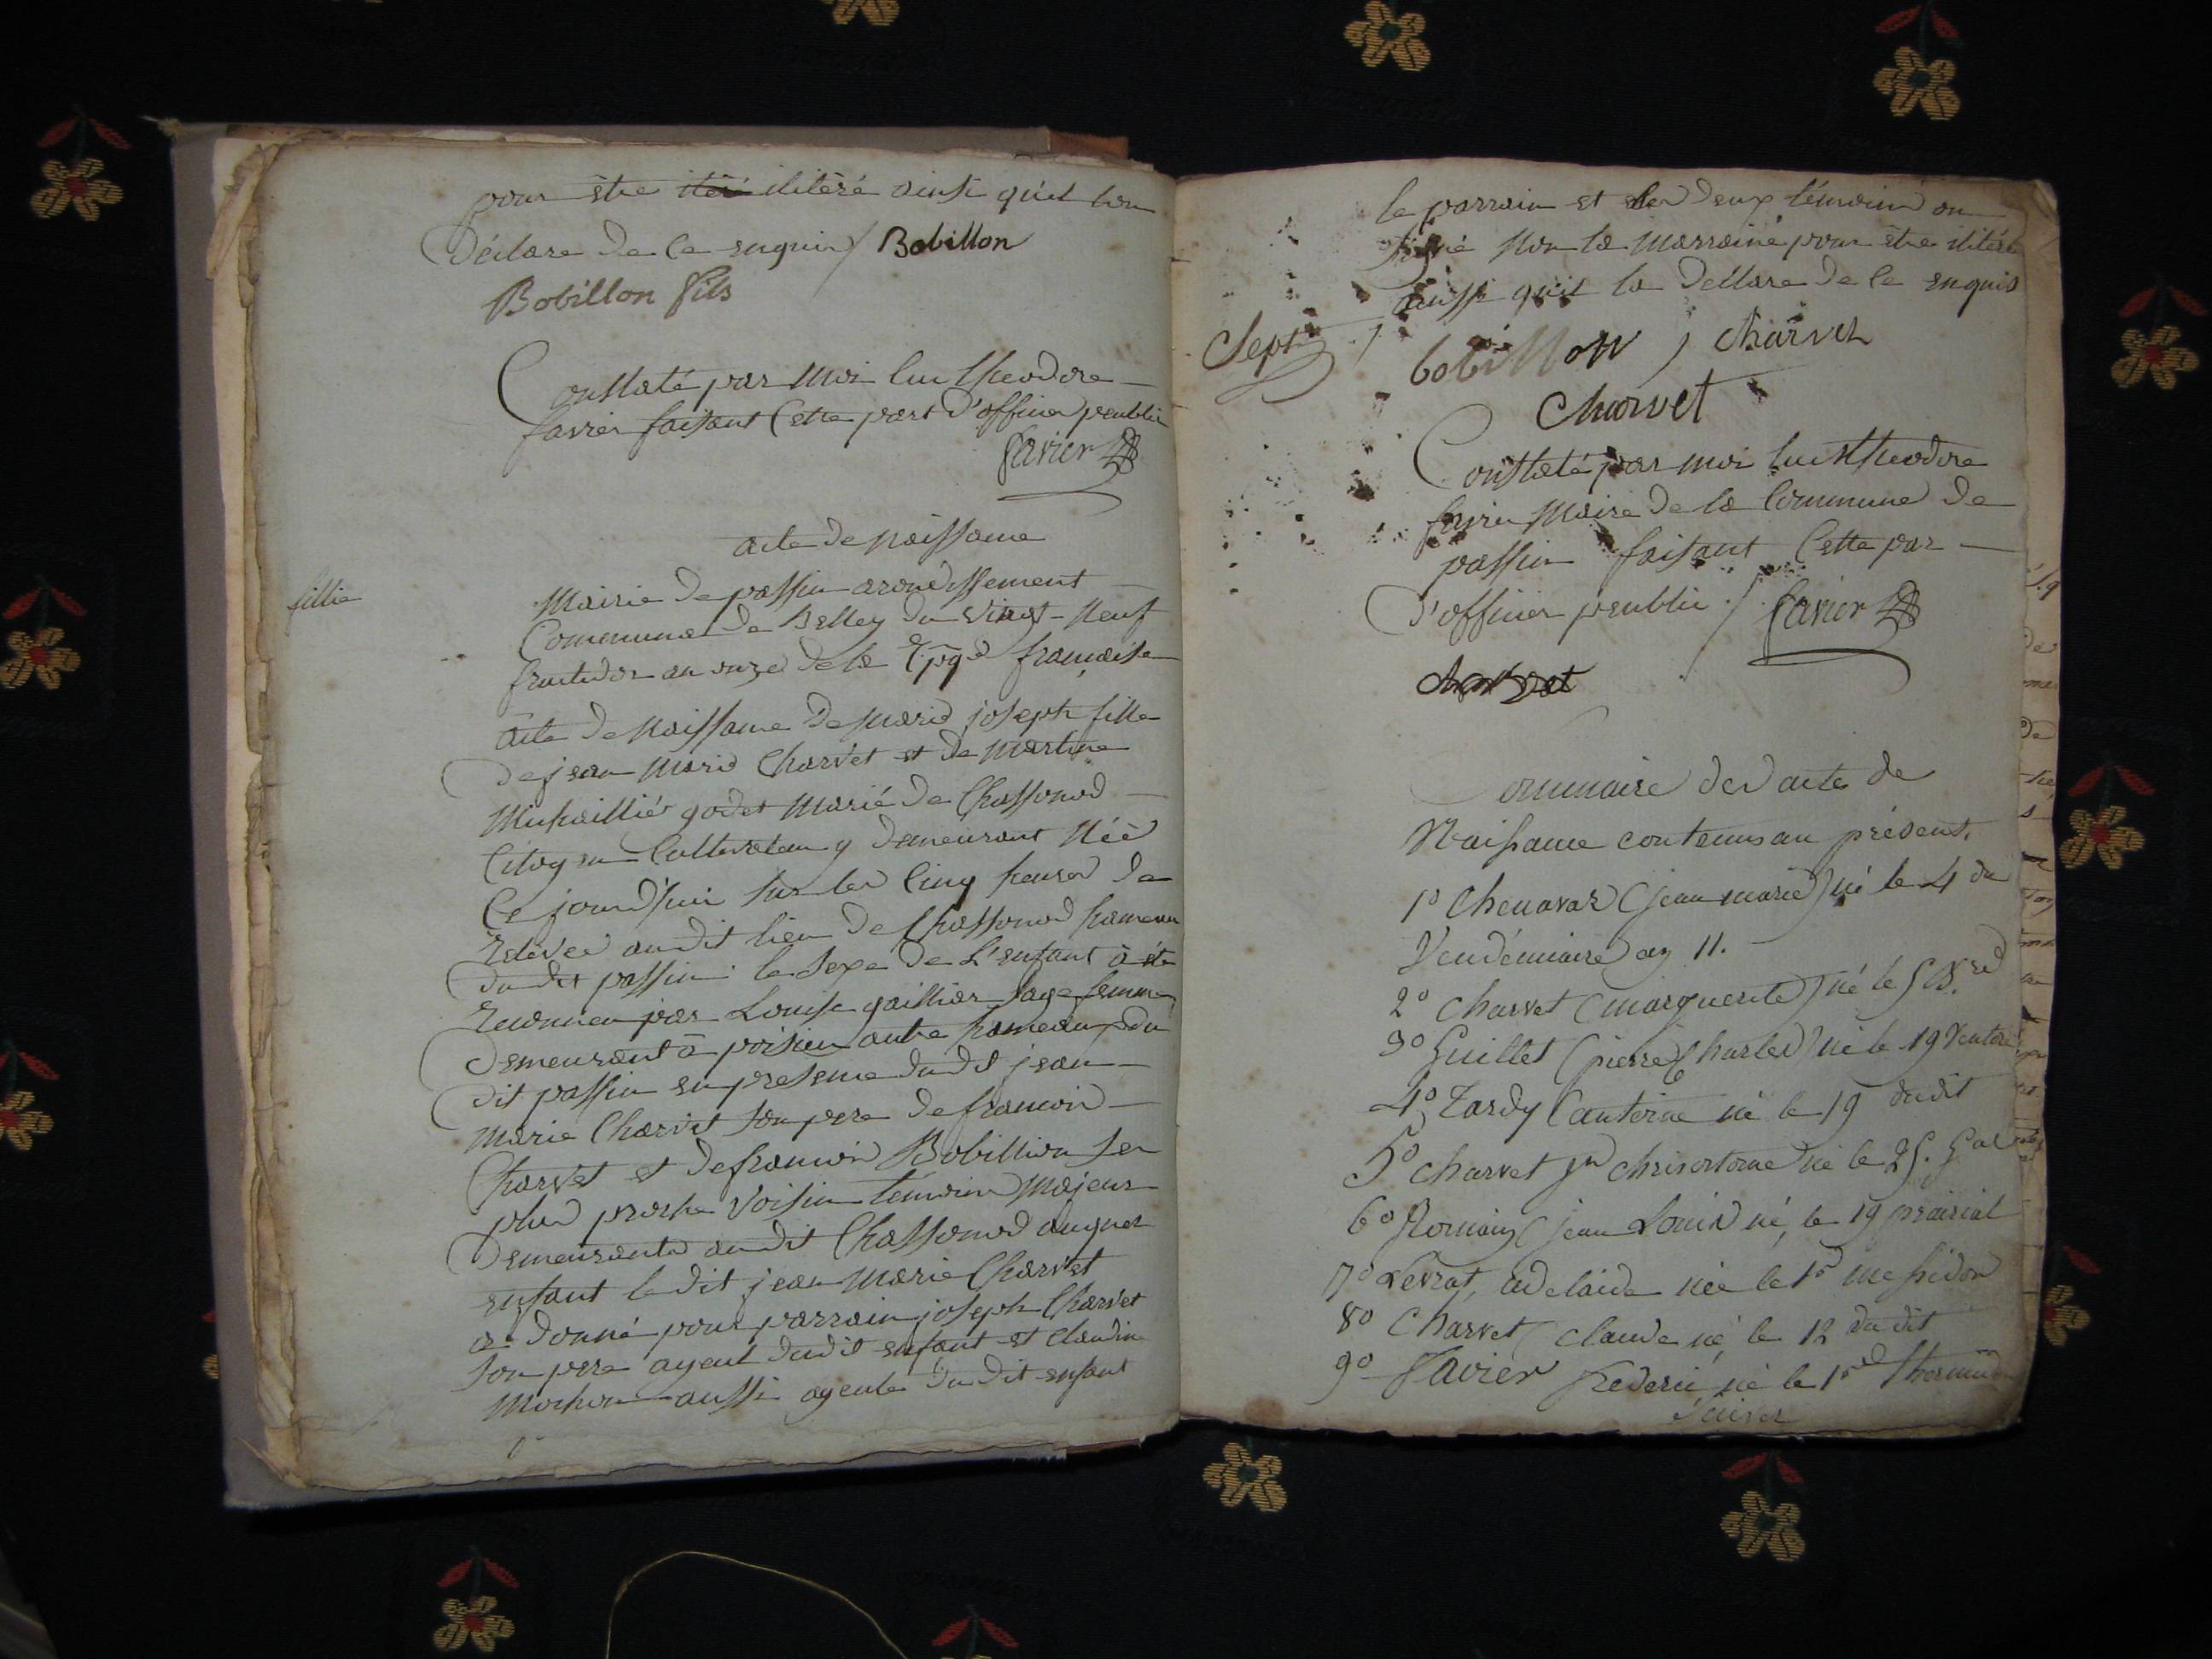 pour être illitéré ainsi quil lon
Déclare de ce enquis / Bobillon
Bobillon fils
Constaté par moi luc theodore
favier faisant Cette part d'officier peublic
favier
acte de naissance
fillie
Mairie de passin arondissement
Commune de Belley du vingt-neuf
fructidor an onze de la française
acte de Naissance de marie joseph fille
de jean marie Charvet et de martine
godet marié de Chassonod
Citoyen Cultivateur y demeurant Née
Ce jourd'hui sur les cinq heures de
Relevée audit lieu de Chassonod hameau
dudit passin. le sexe de L'enfant à été
Reconneu par Louise gaillier sage femme
demeurant à poisieu autre hameau du
dit passin en presence dudit jean
marie Charvet son pere de francois
Charvet et de francois Bobillion ses
plus proche voisin temoins majeur
demeurants audit Chassonod auquel
enfant le dit jean marie Charvet
a donné pour parrain joseph Charvet
son pere ayeul dudit enfant et Claudine
Mochon aussi ayeule du dit enfant
le parrain et les deux témoins on
signé Non la marraine pour être illitéré
ainssi quil la déclare de ce enquis
Sept
bobillon / Charvet
Charvet
Constaté par moi luc theodore
favier Maire de la Commune de
passin faisant Cette par
D'officier peublic / favier
Sommaire des actes de
Naissance contenus au présent.
1º Chenavas (jean marie) né le 4 du
Vendémiaire an 11.
2º Charvet (marguerite) né le 5
3º Guillet (pierre Charles) né le 19 Ventose
4º Tardy (antoine né le 19 dudit
5º Charvet jn chrisostome né le 25. Gal
6º Romain (jean Louis né, le 19 prairial
7º Levrat, adelaide née le 1er messidor
8º Charvet, claude né, le 12 dudit
9º Favier Frederic né le 1er thermidor